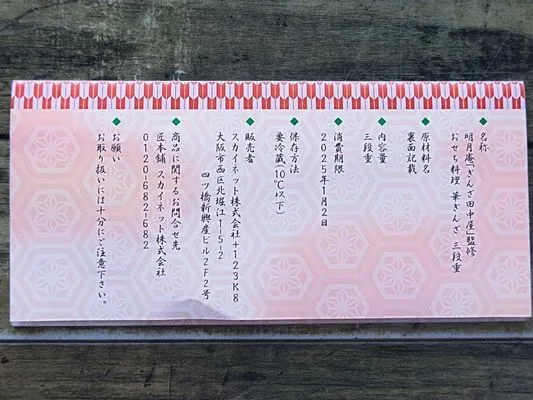 ◆名称
明月庵「ぎんざ田中屋」監修
おせち料理 華ぎんざ 三段重
◆原材料名
裏面記載
◆内容量
三段重
◆消費期限
2025年1月2日
◆保存方法
要冷蔵(10℃以下)
◆販売者
スカイネット株式会社+123K8
大阪市西区北堀江1-5-2
四ツ橋新興産ビル2F2号
◆商品に関するお問合せ先
匠本舗 スカイネット株式会社
0120-682-682
◆お願い
お取り扱いには十分にご注意下さい。